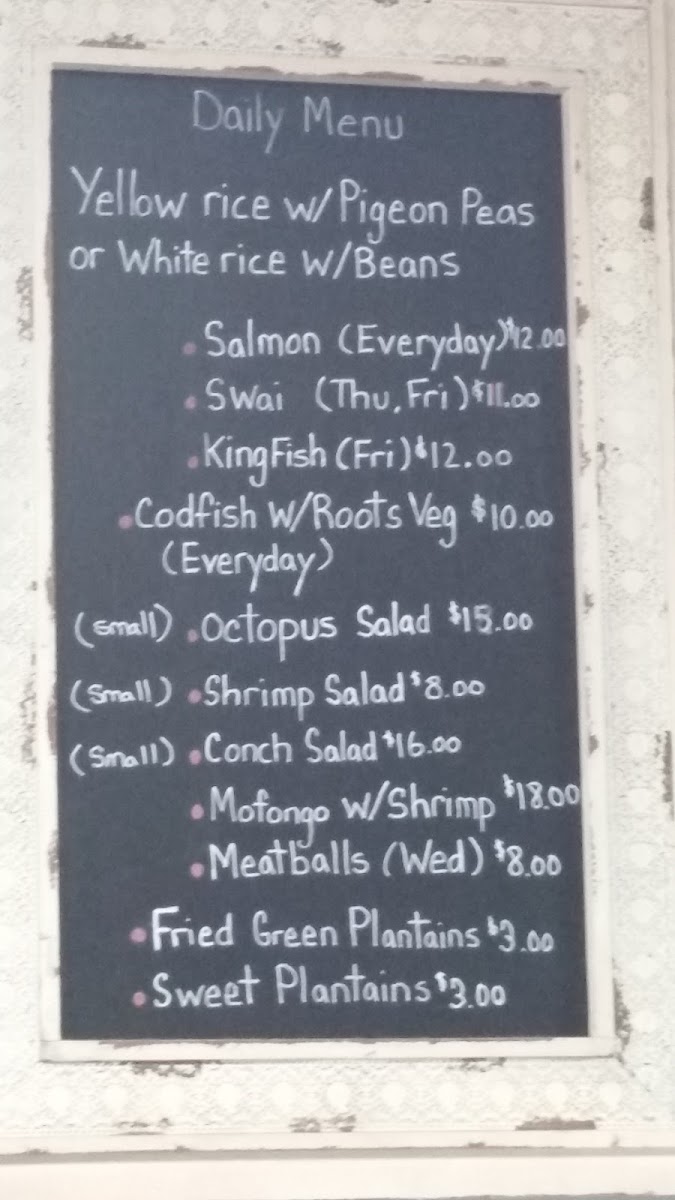 Daily Menu
Yellow rice w/Pigeon Peas
or White rice w/Beans
• Salmon (Everyday) $12.00
• Swai (Thu, Fri) $11.00
• KingFish (Fri) $12.00
• Codfish w/Roots Veg $10.00
(Everyday)
(small) • Octopus Salad $15.00
(small) • Shrimp Salad $8.00
(small) • Conch Salad $16.00
• Mofongo w/Shrimp $18.00
• Meatballs (Wed) $8.00
• Fried Green Plantains $3.00
• Sweet Plantains $3.00